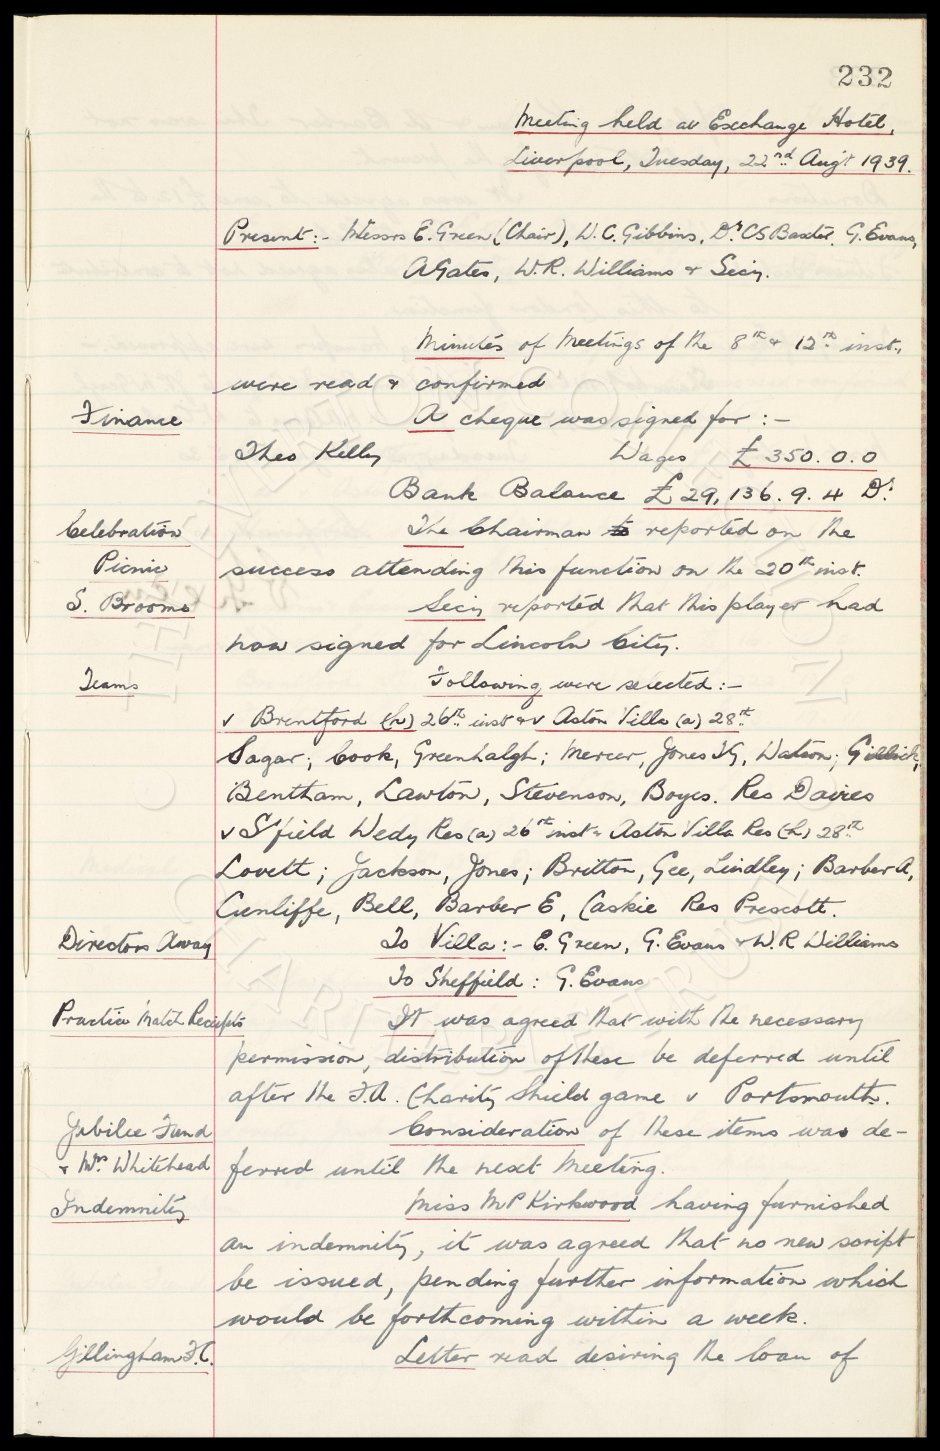 232
Meeting held at Exchange Hotel,
Liverpool, Tuesday, 22nd Aug't 1939.
Present:- Messrs E. Green (Chair), W.C. Gibbins, Dr. CS Baxter, G. Evans,
A Gates, W.R. Williams & Secy.
Minutes of Meetings of the 8th & 12th inst.,
were read & confirmed
Finance A cheque was signed for :-
Theo Kelly Wages £350.0.0
Bank Balance £29,136.9.4 Dr.
Celebration The Chairman to reported on the
Picnic success attending this function on the 20th inst.
S. Broome Secy reported that this player had
now signed for Lincoln City.
Teams Following were selected :-
v Brentford (h) 26th inst & v Aston Villa (a) 28th
Sagar; Cook, Greenhalgh; Mercer, Jones TG, Watson; Gillick,
Bentham, Lawton, Stevenson, Boyes. Res Davies
v S'field Wedy Res (a) 26th inst & Aston Villa Res (h) 28th
Lovett; Jackson, Jones; Britton, Gee, Lindley; Barber A,
Cunliffe, Bell, Barber E, Caskie Res Prescott.
Directors Away To Villa :- E. Green, G. Evans & W.R Williams
To Sheffield : G. Evans
Practice Match Receipts It was agreed that with the necessary
permission, distribution of these be deferred until
after the F.A. Charity Shield game v Portsmouth.
Jubilee Fund Consideration of these items was de-
& Mrs. Whitehead ferred until the next Meeting.
Indemnity Miss MP Kirkwood having furnished
an indemnity, it was agreed that no new script
be issued, pending further information which
would be forthcoming within a week.
Gillingham F.C. Letter read desiring the loan of